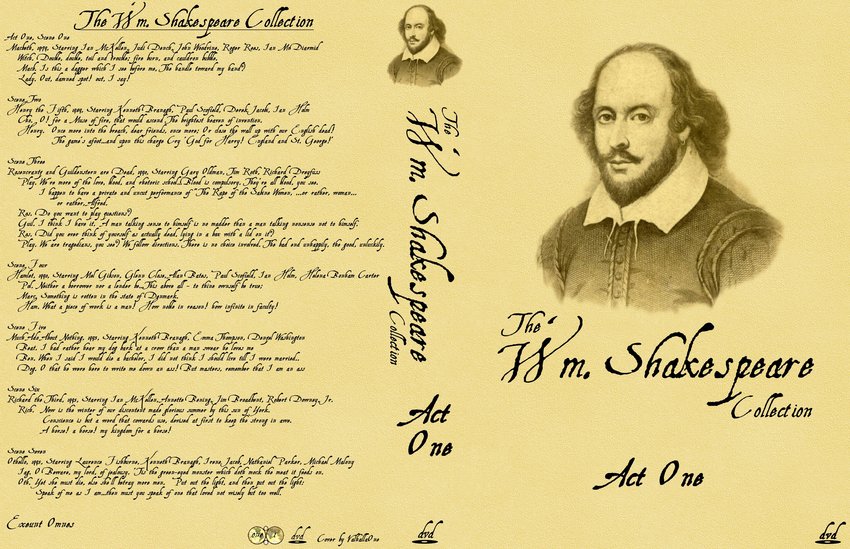 The Wm. Shakespeare Collection
Act One, Scene One
Macbeth, 1979, Starring Ian McKellen, Judi Dench, John Woodvine, Roger Rees, Ian McDiarmid
Witch. Double, double, toil and trouble; fire burn, and cauldron bubble.
Macb. Is this a dagger which I see before me, The handle toward my hand?
Lady. Out, damned spot! out, I say!
Scene Two
Henry the Fifth, 1989, Starring Kenneth Branagh, Paul Scofield, Derek Jacobi, Ian Holm
Cho. O! for a Muse of fire, that would ascend The brightest heaven of invention.
Henry. Once more into the breach, dear friends, once more; Or close the wall up with our English dead!
The game's afoot...and upon this charge Cry God for Harry! England and St. George!
Scene Three
Rosencrantz and Guildenstern are Dead, 1990, Starring Gary Oldman, Tim Roth, Richard Dreyfuss
Play. We're more of the love, blood, and rhetoric school. Blood is compulsory. They're all blood, you see.
I happen to have a private and uncut performance of "The Rape of the Sabine Women, "...or rather, woman...
or rather, Alfred.
Ros. Do you want to play questions?
Guil. I think I have it. A man talking sense to himself is no madder than a man talking nonsense not to himself.
Ros. Did you ever think of yourself as actually dead, lying in a box with a lid on it?
Play. We are tragedians, you see? We follow directions. There is no choice involved. The bad end unhappily, the good, unluckily.
Scene Four
Hamlet, 1990, Starring Mel Gibson, Glenn Close, Alan Bates, Paul Scofield, Ian Holm, Helena Bonham Carter
Pol. Neither a borrower nor a lender be... This above all - to thine ownself be true;
Marc. Something is rotten in the state of Denmark.
Ham. What a piece of work is a man! How noble in reason! how infinite in faculty!
Scene Five
Much Ado About Nothing, 1993, Starring Kenneth Branagh, Emma Thompson, Denzel Washington
Beat. I had rather hear my dog bark at a crow than a man swear he loves me
Ben. When I said I would die a bachelor, I did not think I should live till I were married..
Dog. O that he were here to write me down an ass! But masters, remember that I am an ass
Scene Six
Richard the Third, 1995, Starring Ian McKellen, Annette Bening, Jim Broadbent, Robert Downey, Jr.
Rich. Now is the winter of our discontent made glorious summer by this sun of York.
Conscience is but a word that cowards use, devised at first to keep the strong in awe.
A horse! a horse! my kingdom for a horse!
Scene Seven
Othello, 1995, Starring Laurence Fishburne, Kenneth Branagh, Irene Jacob, Nathaniel Parker, Michael Maloney
Iag. O Beware, my lord, of jealousy. 'Tis the green-eyed monster which doth mock the meat it feeds on.
Oth. Yet she must die, else she'll betray more men. Put out the light, and then put out the light;
Speak of me as I am...then must you speak of one that loved not wisely but too well.
Exeunt Omnes
dvd
Cover by ValhallaOne
The
Wm. Shakespeare
Collection
Act
One
dvd
The
Wm. Shakespeare
Collection
Act One
dvd